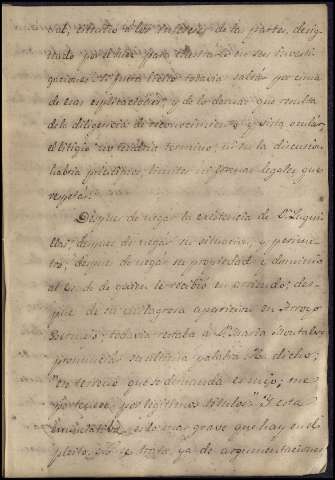 ral, extraño á los intereses de las partes, desig-
nado por el Juez para ilustrarlo en sus investi-
gaciones. Si fuera lícito todavia saltar por cima
de esas esplicaciones, y de lo demas que resulta
de la diligencia de reconocimiento y vista ocular,
el litigio no tendria termino, ni en la discusion
habria pleitos, limites ni formas legales que
respetar.
Despues de negar la existencia de
despues de negar su situacion, y perime-
tro, despues de negar su propiedad y dominio
al Conde de quien le recibió en arriendo; des-
pues de su milagrosa aparicion en Arroyo
todavia restaba á Dª Maria Montalvo
pronunciar su ultima palabra. Ha dicho:
"en terreno que se demanda es mio, me
pertenece por legitimos titulos." Y esta
es lo mas grave que hay en el
pleito. No se trata ya de argumentaciones